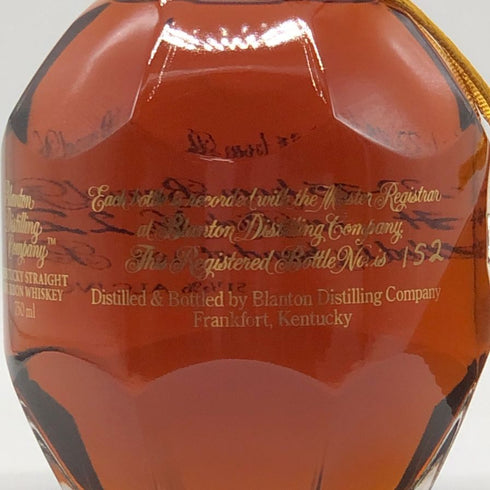 Blanton
Distilling
Company™
KENTUCKY STRAIGHT
BOURBON WHISKEY
750 ml
Each bottle is recorded with the Master Registrar
at Blanton Distilling Company.
This Registered Bottle No. is 152
Distilled & Bottled by Blanton Distilling Company
Frankfort, Kentucky